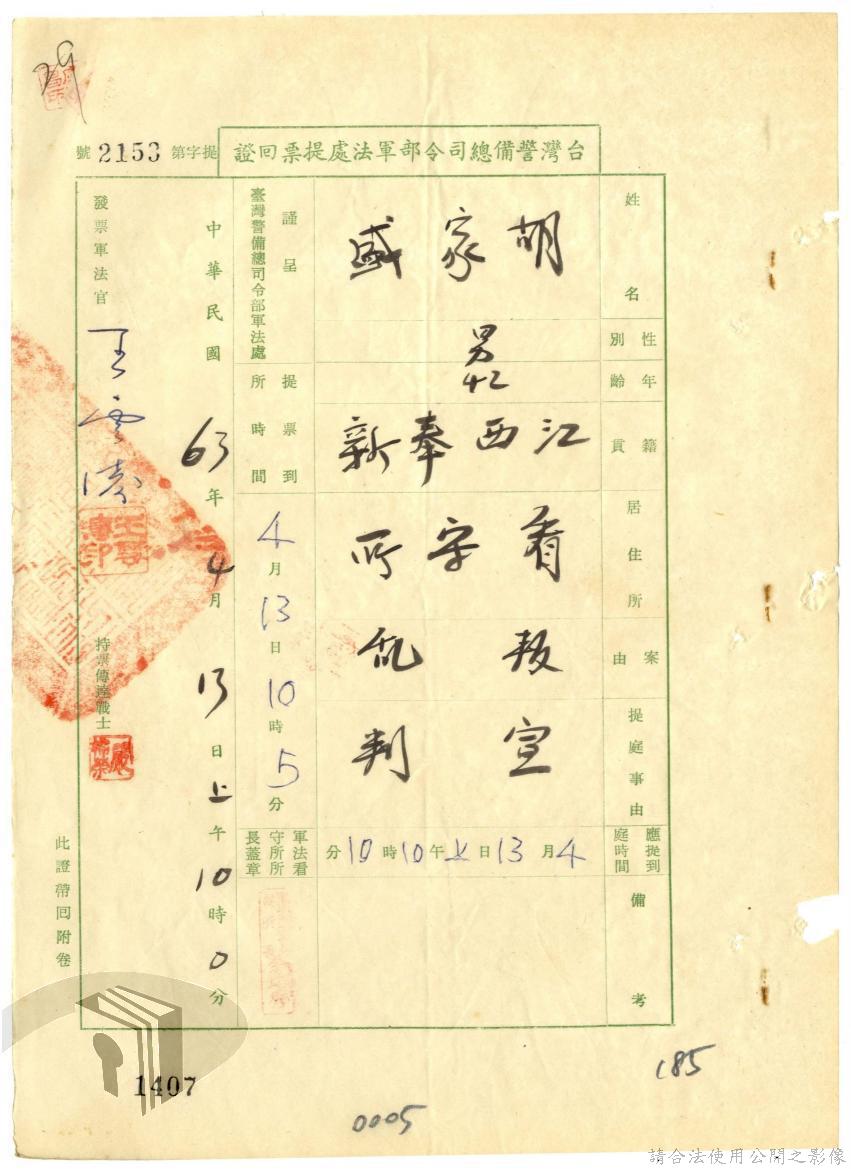 29
台灣警備總司令部軍法處提票回證
提字第2153號
姓名
胡家盛
性別
男
年齡
42
籍貫
江西奉新
居住所
看守所
案由
叛亂
提庭事由
宣判
應提到庭時間
4月13日上午10時10分
備考
謹呈
臺灣警備總司令部軍法處
提票到所時間
4月13日10時5分
軍法看守所所長蓋章
中華民國63年4月13日上午10時0分
發票軍法官
王雲濤
持票傳達戰士
此證帶回附卷
1407
0005
185
請合法使用公開之影像